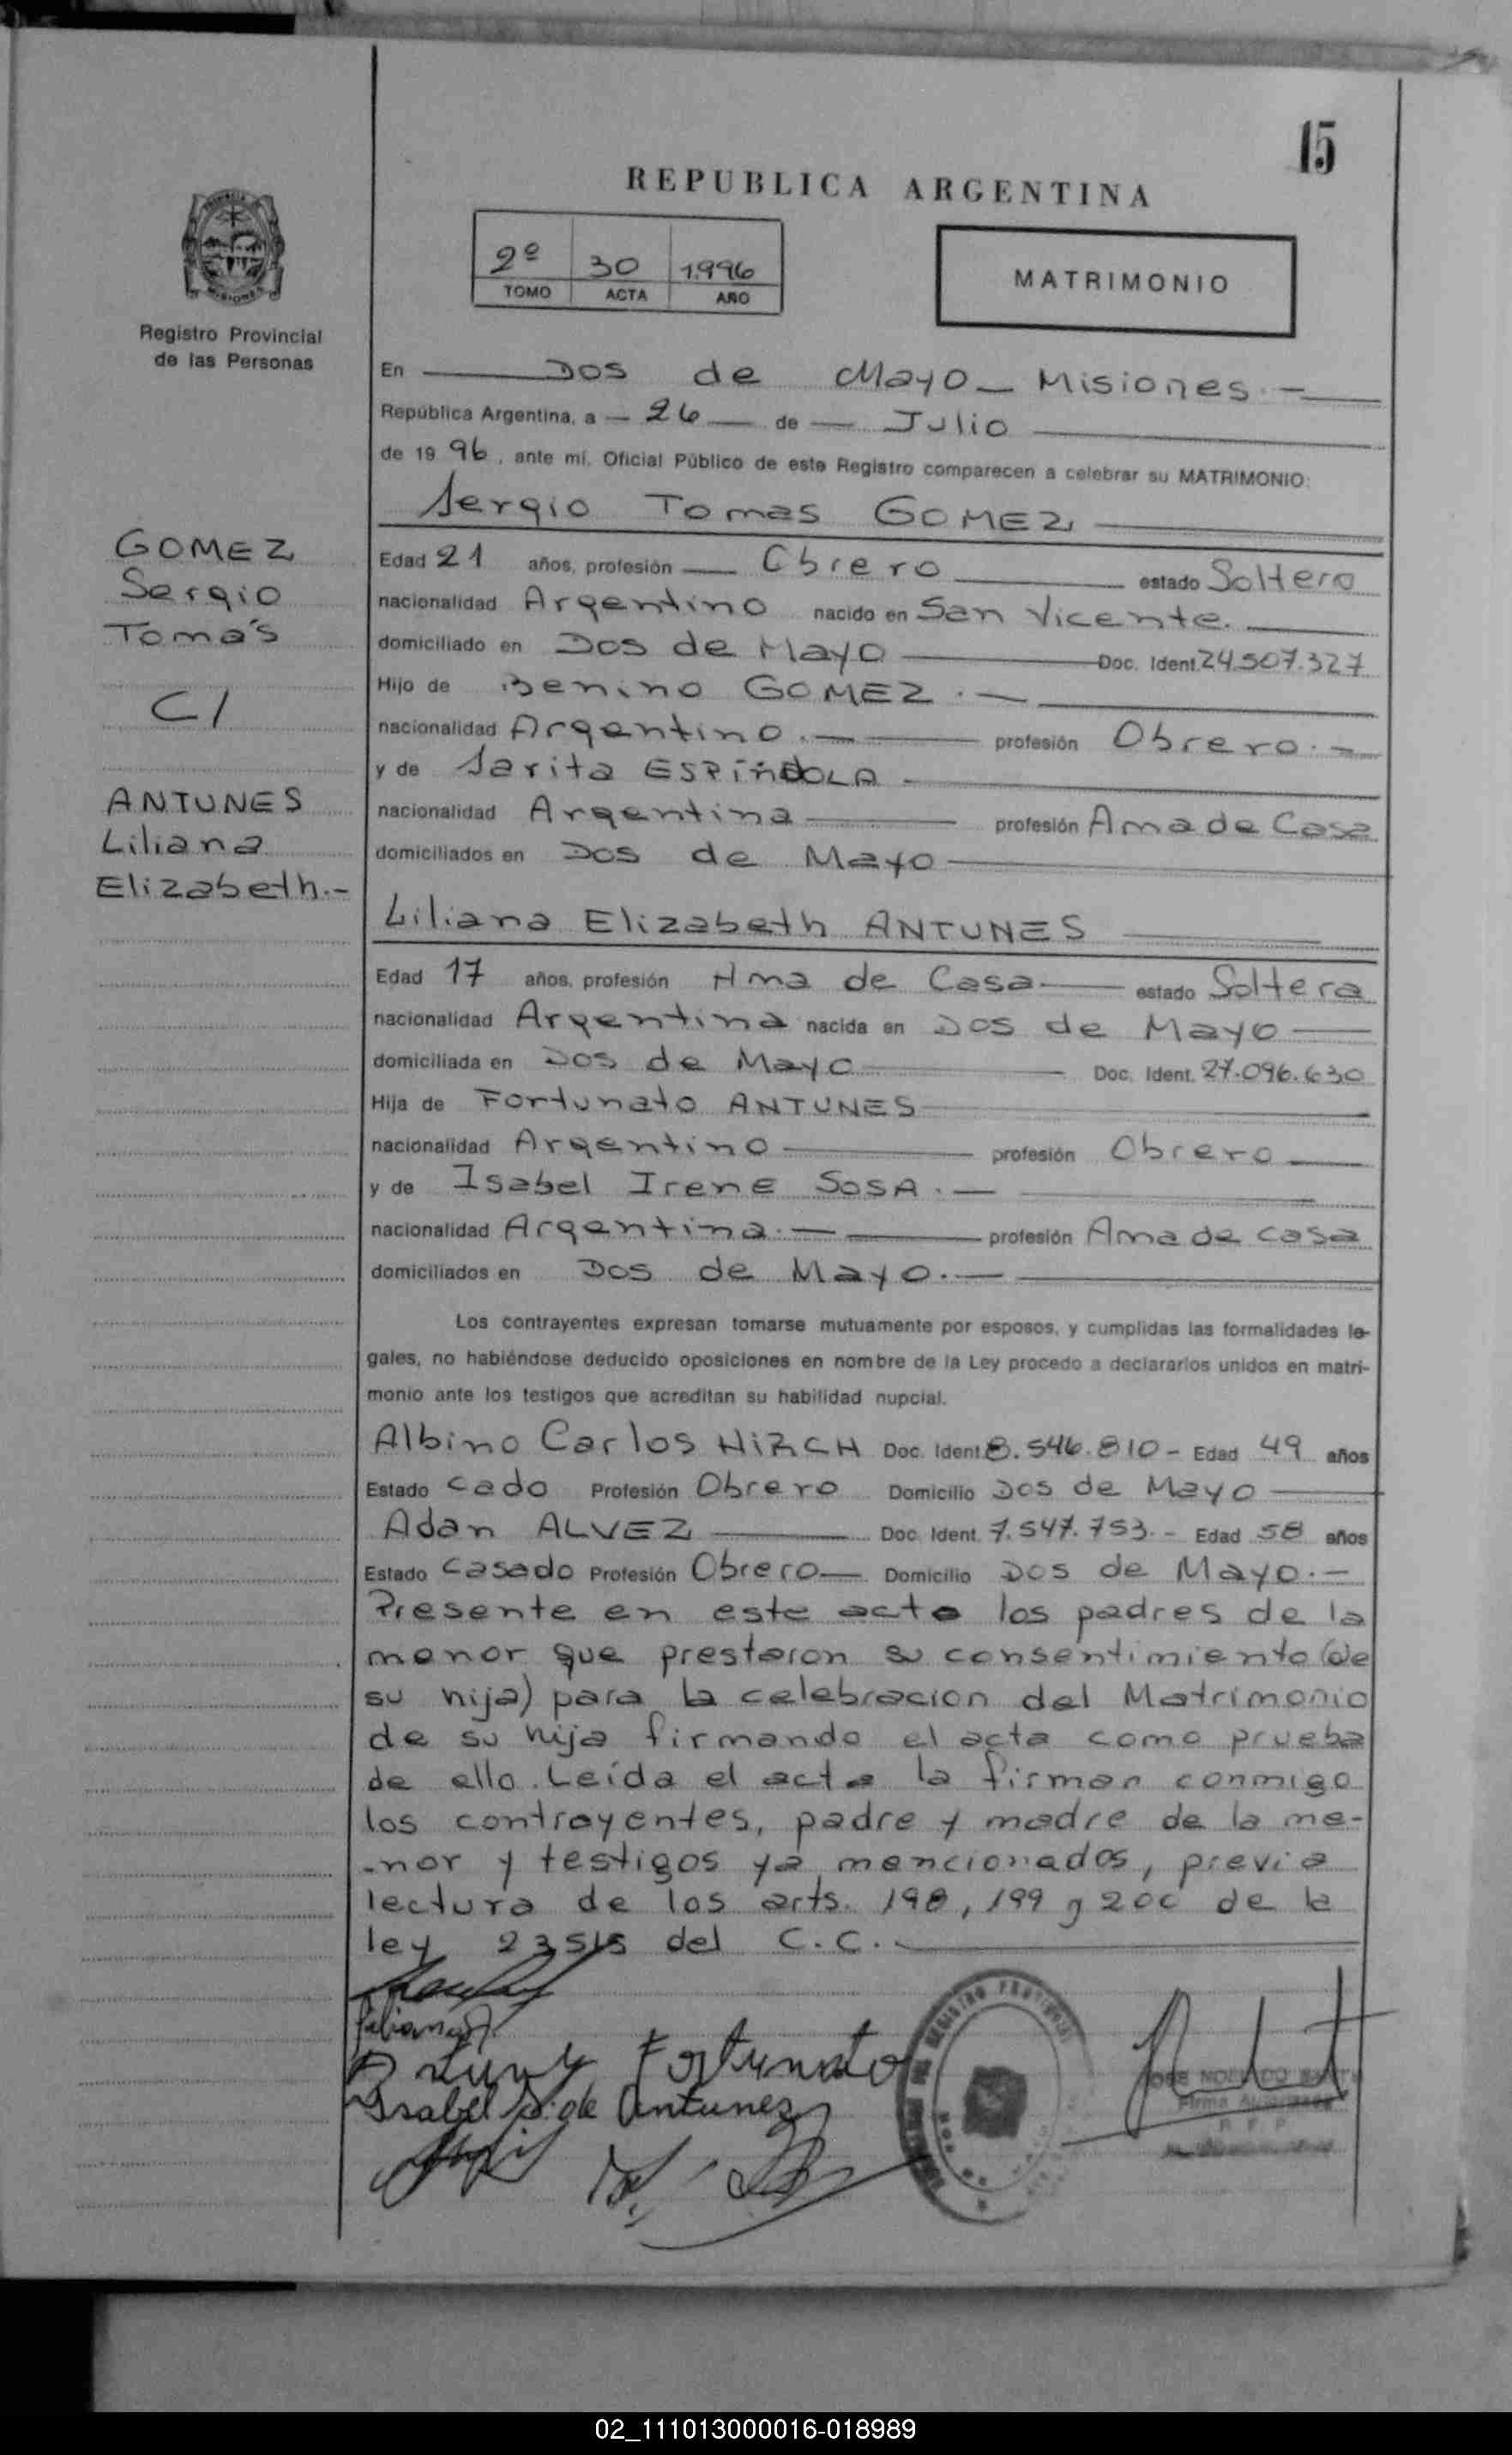 15
REPUBLICA ARGENTINA
2º 30 1.996
TOMO ACTA AÑO
MATRIMONIO
Registro Provincial
de las Personas
GOMEZ
Sergio
Tomás
C/
ANTUNES
Liliana
Elizabeth.-
En Dos de Mayo - Misiones.-
República Argentina, a - 26 - de - Julio
de 19 96, ante mí, Oficial Público de este Registro comparecen a celebrar su MATRIMONIO:
Sergio Tomas GOMEZ
Edad 21 años, profesión Obrero estado Soltero
nacionalidad Argentino nacido en San Vicente.
domiciliado en Dos de Mayo Doc. Ident. 24.507.327
Hijo de Benino GOMEZ.-
nacionalidad Argentino.- profesión Obrero.-
y de Sarita ESPÍNDOLA
nacionalidad Argentina profesión Ama de Casa
domiciliados en Dos de Mayo
Liliana Elizabeth ANTUNES
Edad 17 años, profesión Ama de Casa estado Soltera
nacionalidad Argentina nacida en Dos de Mayo
domiciliada en Dos de Mayo Doc. Ident. 27.096.630
Hija de Fortunato ANTUNES
nacionalidad Argentino profesión Obrero
y de Isabel Irene SOSA.-
nacionalidad Argentina.- profesión Ama de casa
domiciliados en Dos de Mayo.-
Los contrayentes expresan tomarse mutuamente por esposos, y cumplidas las formalidades le-
gales, no habiéndose deducido oposiciones en nombre de la Ley procedo a declararlos unidos en matri-
monio ante los testigos que acreditan su habilidad nupcial.
Albino Carlos HIRCH Doc. Ident. 8.546.810- Edad 49 años
Estado Cado Profesión Obrero Domicilio Dos de Mayo
Adan ALVEZ Doc. Ident. 7.547.753.- Edad 58 años
Estado Casado Profesión Obrero Domicilio Dos de Mayo.-
Presente en este acto los padres de la
menor que prestaron su consentimiento (de
su hija) para la celebracion del Matrimonio
de su hija firmando el acta como prueba
de ello. Leída el acta la firman conmigo
los contrayentes, padre y madre de la me-
-nor y testigos ya mencionados, previa
lectura de los arts. 198, 199 y 200 de la
ley 23515 del C.C.
Liliana
Fortunato
Isabel S. de Antunez
Firma
R. P. P.
02_111013000016-018989